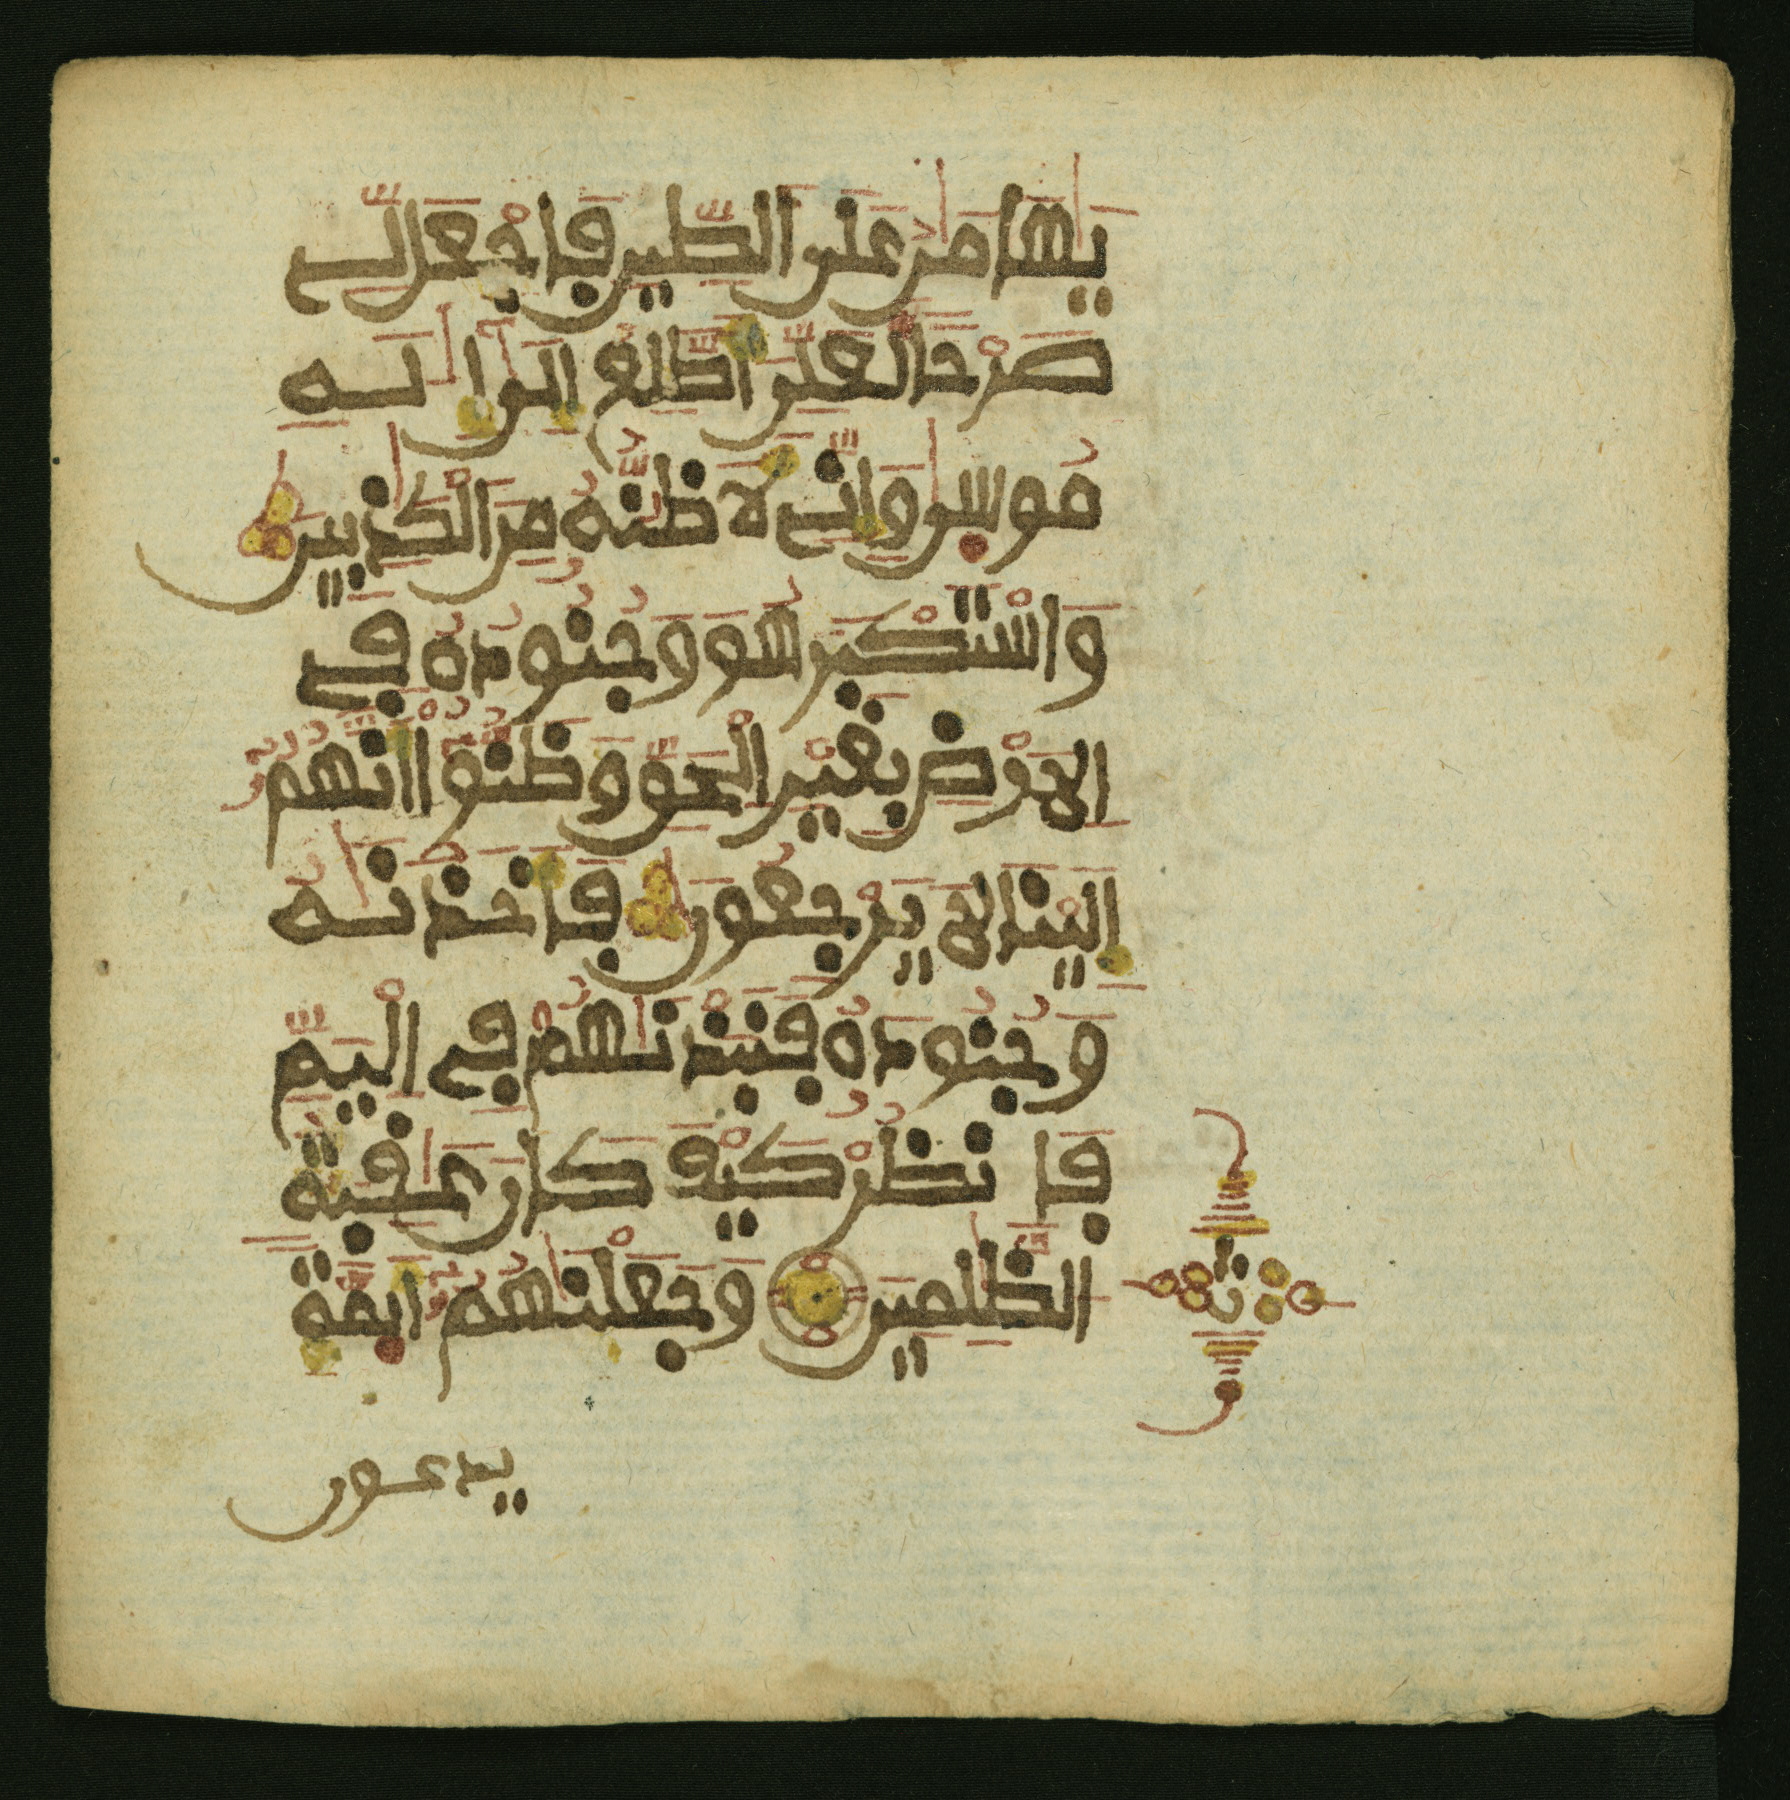 يَٰهَٰمَٰنُ عَلَى الطِّينِ فَاجْعَل لِّے
صَرْحاً لَّعَلِّىَ أَطَّلِعُ إِلَىٰ إِلَٰهِ
مُوسىٰ وَإِنِّے لَأَظُنُّهُ مِنَ الْكَٰذِبِينَ
وَاسْتَكْبَرَ هُوَ وَجُنُودُهُ فِے
الَارْضِ بِغَيْرِ الْحَقِّ وَظَنُّواْ أَنَّهُمُ
إِلَيْنَا لَا يَرْجَعُونَ فَأَخَذْنَٰهُ
وَجُنُودَهُ فَنَبَذْنَٰهُمْ فِے الْيَمِّ
فَانظُرْ كَيْفَ كَانَ عَٰقِبَةُ
الظَّٰلِمِينَ وَجَعَلْنَٰهُمُ أَئِمَّةً
يدعون